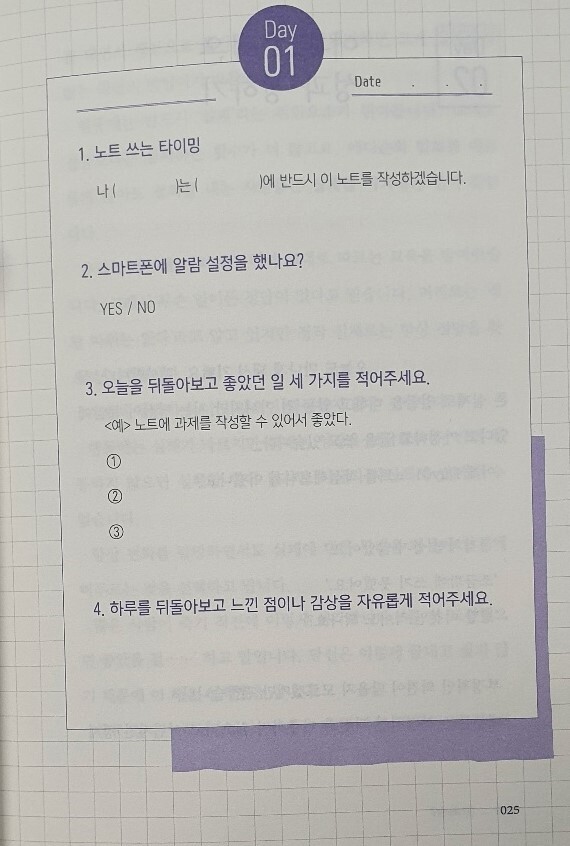 Day
01
Date . . .
1. 노트 쓰는 타이밍
나 ( )는 ( )에 반드시 이 노트를 작성하겠습니다.
2. 스마트폰에 알람 설정을 했나요?
YES / NO
3. 오늘을 뒤돌아보고 좋았던 일 세 가지를 적어주세요.
<예> 노트에 과제를 작성할 수 있어서 좋았다.
①
②
③
4. 하루를 뒤돌아보고 느낀 점이나 감상을 자유롭게 적어주세요.
025